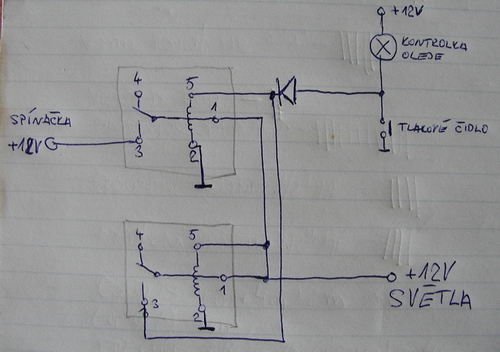 +12V
KONTROLKA
OLEJE
4
5
1
SPÍNAČKA
+12V
3
2
TLAKOVÉ ČIDLO
4
5
1
+12V
3
2
SVĚTLA